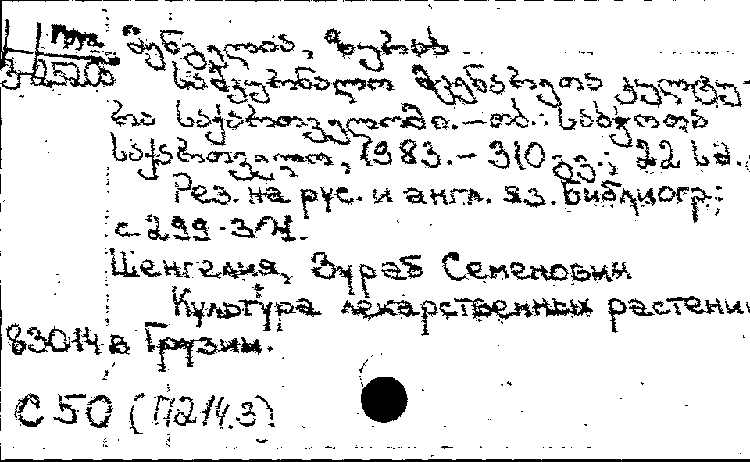 Груз.
შენგელია, ზურაბ
სამკურნალო მცენარეთა კულტუ-
რა საქართველოში.-თბ.: საბჭოთა
საქართველო, 1983.- 310 გვ.; 22 სმ.
Рез. на рус. и англ. яз. Библиогр.:
с. 299-301.
Шенгелия, Зураб Семенович
Культура лекарственных растений
83014 в Грузии.
С 50 (П214.3)